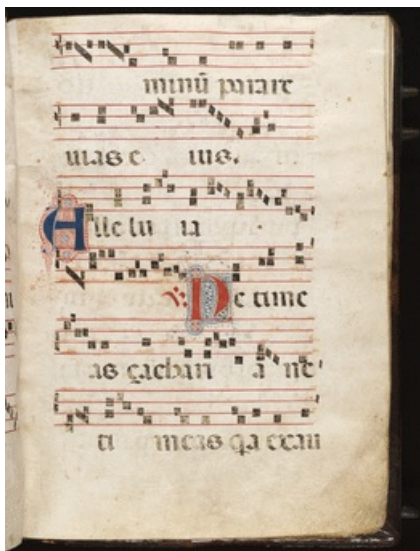 minū parare
uias e ius.
Alle lu ia
℣. Ne time
as çachari a ne
ti meas q̄a exau